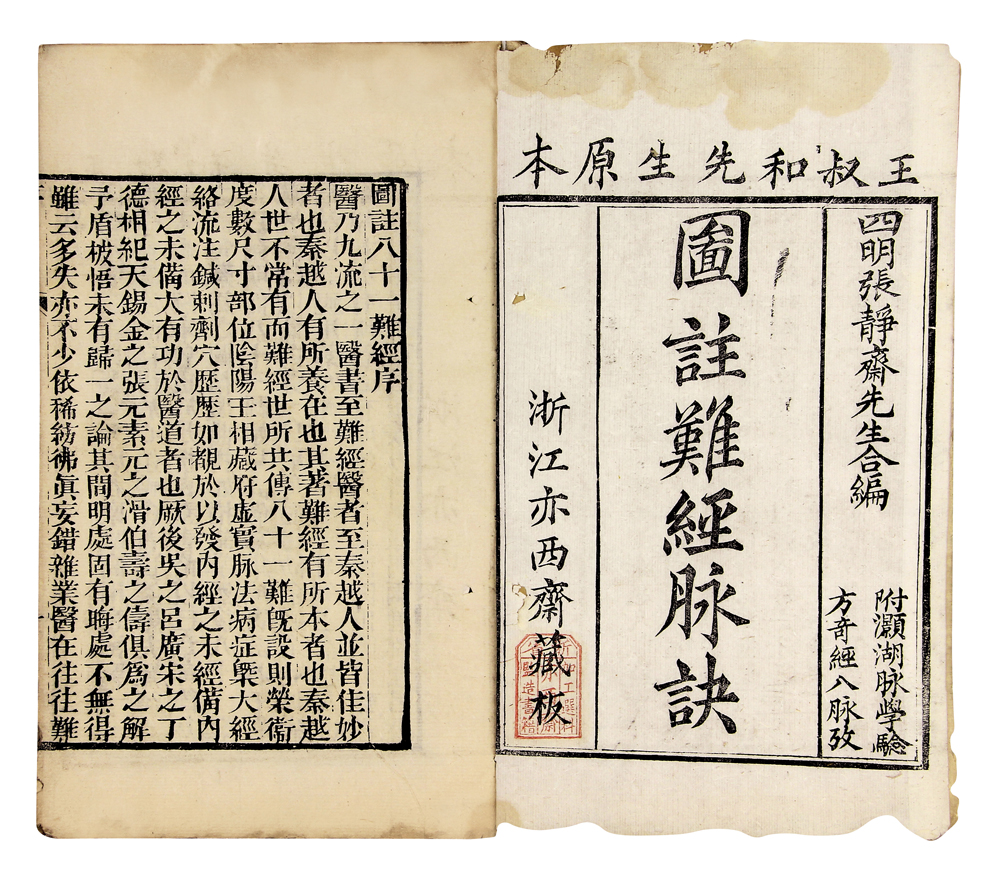 王叔和先生原本
四明張靜齋先生合編
附灝湖脉學驗
方奇經八脉攷
圖註難經脉訣
浙江亦西齋藏板
圖註八十一難經序
醫乃九流之一醫書至難經醫者至秦越人並皆佳妙
者也秦越人有所養在也其著難經有所本者也秦越
人世不常有而難經世所共傳八十一難旣設則榮衞
度數尺寸部位陰陽王相藏府虛實脉法病症槩大經
絡流注鍼刺劑穴歷歷如覩於以發內經之未經備內
經之未備大有功於醫道者也厥後吳之呂廣宋之丁
德相紀天錫金之張元素元之滑伯壽之儔俱爲之解
予盾被悟未有歸一之論其間明處固有晦處不無得
雖云多失亦不少依稀紡彿眞妄錯雜業醫在往往難